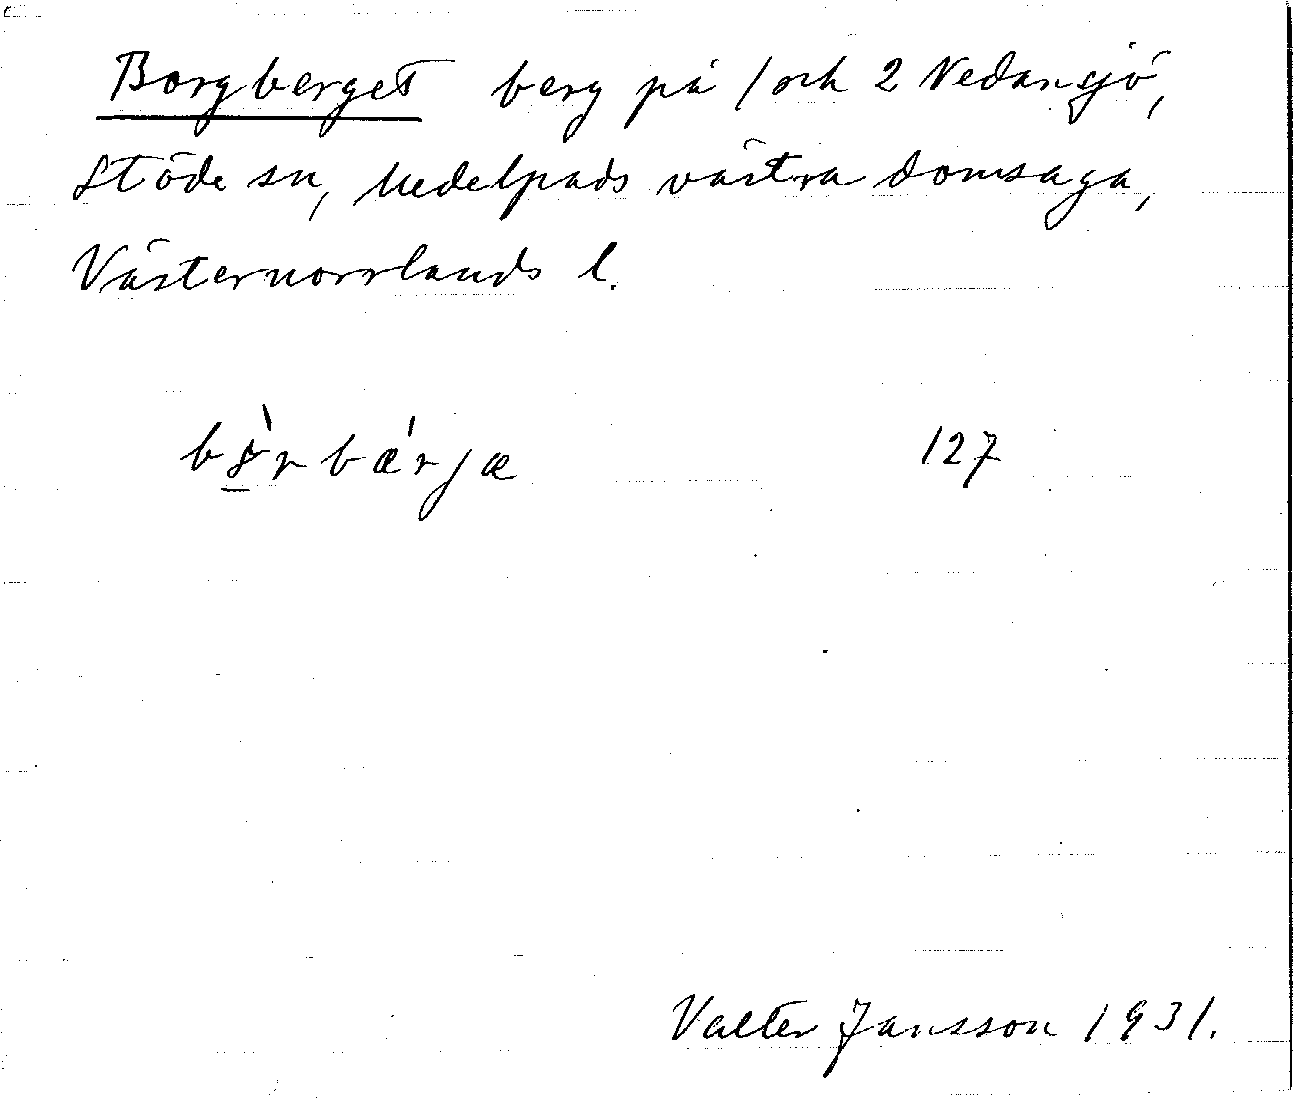 Borgberget berg på 1 och 2 Nedansjö,
Stöde sn, Medelpads västra domsaga,
Västernorrlands l.
127
Valter Jansson 1931.